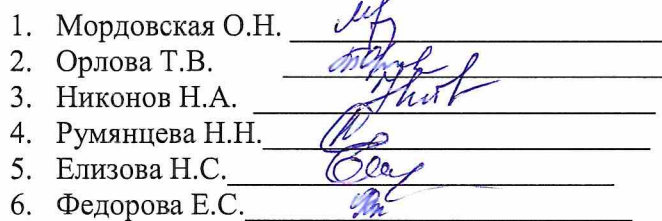 1. Мордовская О.Н.
2. Орлова Т.В.
3. Никонов Н.А.
4. Румянцева Н.Н.
5. Елизова Н.С.
6. Федорова Е.С.